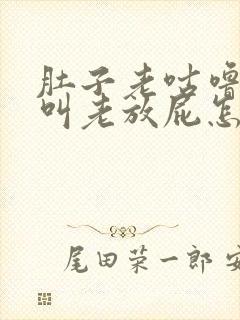 肚子老咕噜
叫老放屁怎
尾田荣一郎 安